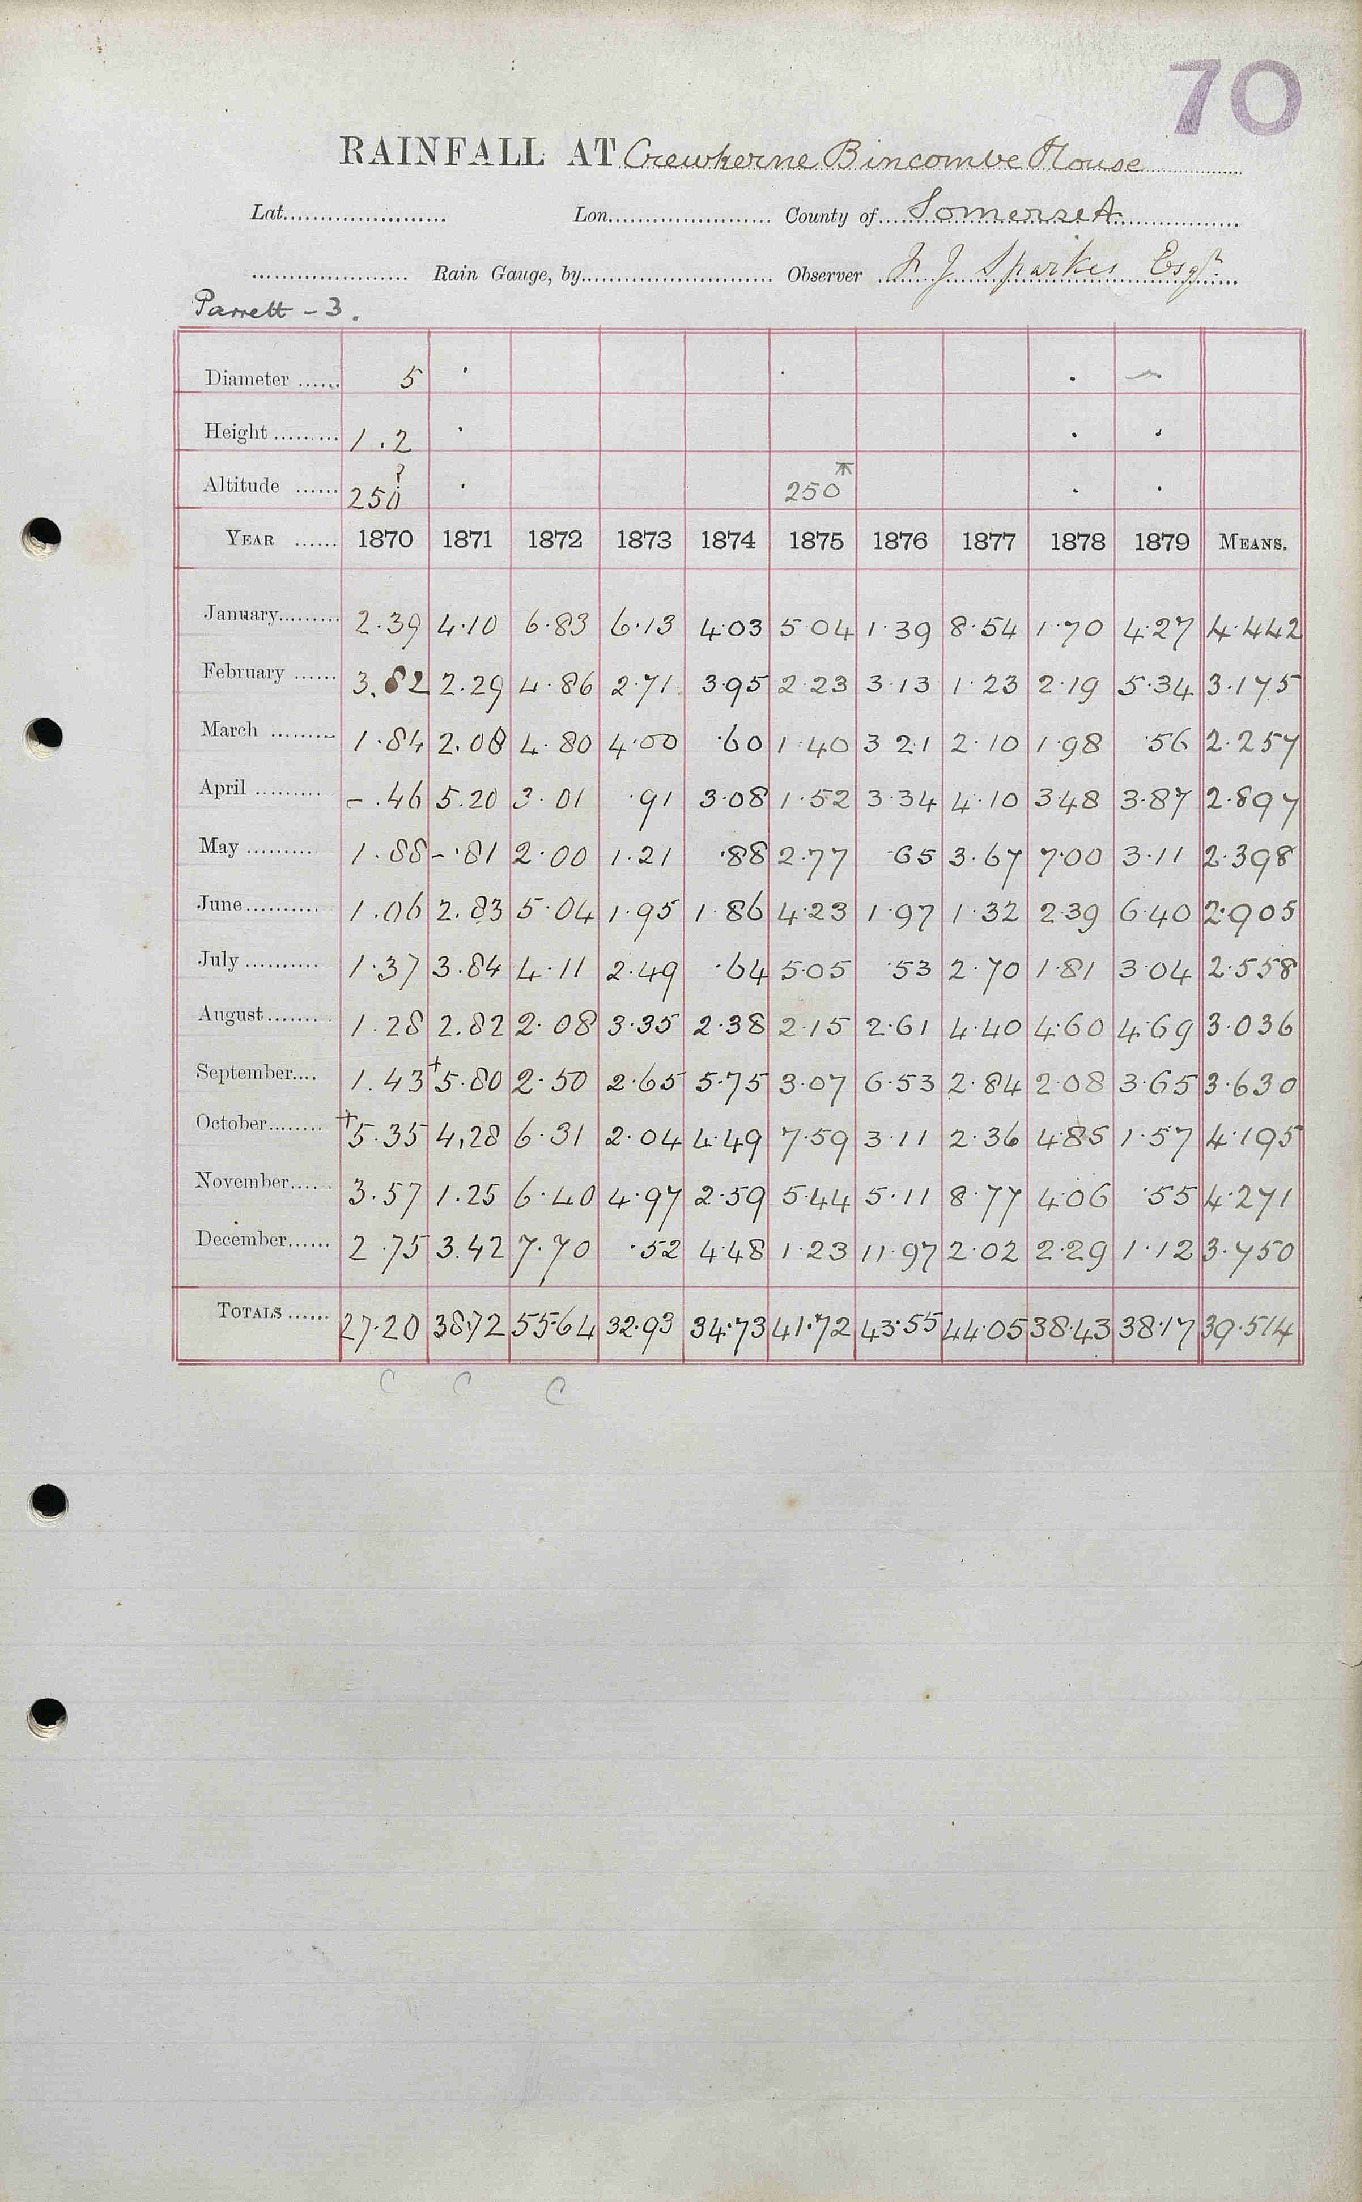 70
RAINFALL AT Crewkerne Bincombe House
Lat. Lon. County of Somerset
Rain Gauge, by Observer J J Sparkes Esqr
Parrett - 3.
Diameter 5
Height 1.2
Altitude 250 ? 250
YEAR 1870 1871 1872 1873 1874 1875 1876 1877 1878 1879 MEANS.
January 2.39 4.10 6.83 6.13 4.03 5.04 1.39 8.54 1.70 4.27 4.442
February 3.82 2.29 4.86 2.71 3.95 2.23 3.13 1.23 2.19 5.34 3.175
March 1.84 2.08 4.80 4.00 .60 1.40 3.21 2.10 1.98 .56 2.257
April -.46 5.20 3.01 .91 3.08 1.52 3.34 4.10 3.48 3.87 2.897
May 1.88 -.81 2.00 1.21 .88 2.77 .65 3.67 7.00 3.11 2.398
June 1.06 2.83 5.04 1.95 1.86 4.23 1.97 1.32 2.39 6.40 2.905
July 1.37 3.84 4.11 2.49 .64 5.05 .53 2.70 1.81 3.04 2.558
August 1.28 2.82 2.08 3.35 2.38 2.15 2.61 4.40 4.60 4.69 3.036
September 1.43 +5.80 2.50 2.65 5.75 3.07 6.53 2.84 2.08 3.65 3.630
October +5.35 4.28 6.31 2.04 4.49 7.59 3.11 2.36 4.85 1.57 4.195
November 3.57 1.25 6.40 4.97 2.59 5.44 5.11 8.77 4.06 .55 4.271
December 2.75 3.42 7.70 .52 4.48 1.23 11.97 2.02 2.29 1.12 3.750
TOTALS 27.20 38.72 55.64 32.93 34.73 41.72 43.55 44.05 38.43 38.17 39.514
C C C